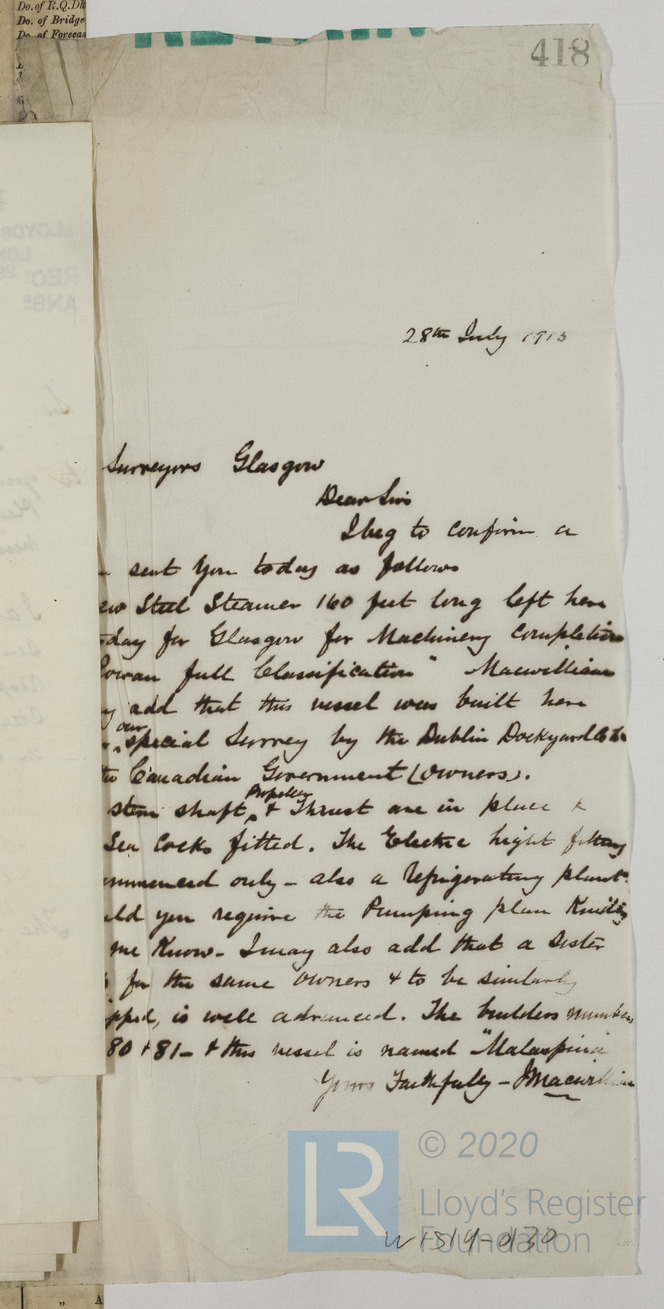 Do. of R.Q.Dk
Do. of Bridge
Do. of Forecas
418
28th July 1913
Surveyors Glasgow
Dear Sirs
I beg to confirm a
sent you today as follows
ew Steel Steamer 160 feet long left here
day for Glasgow for Machinery Completion
Rowan full Classification" Macwilliam
y add that this vessel was built here
our
special Survey by the Dublin Dockyard Co to
the Canadian Government (Owners).
Propeller
stern shaft, & Thrust are in place &
Sea Cocks fitted. The Electric light fitting
ommenced only - also a refrigerating plant.
uld you require the Pumping plan Kindly
me know - I may also add that a Sister
for the same owners & to be similarly
ipped, is well advanced. The builders numbers
80 & 81 - & this vessel is named "Malaspina
Yours Faithfully - J Macwilliam
LR
© 2020
Lloyd's Register
Foundation
W1514-0130